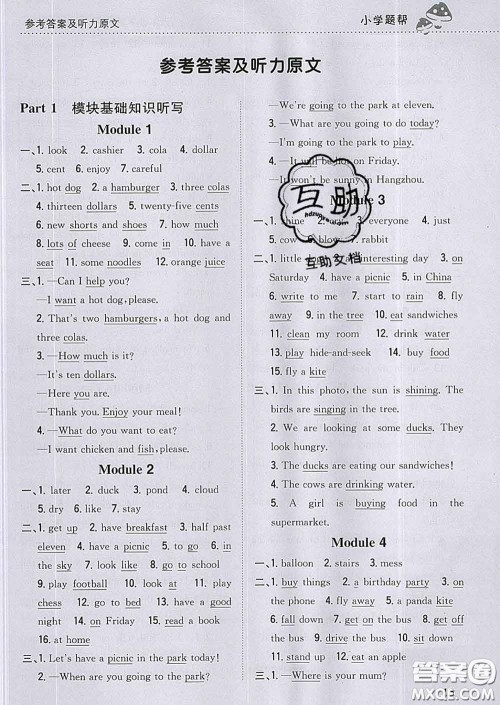 参考答案及听力原文
小学题帮
参考答案及听力原文
Part 1 模块基础知识听写
Module 1
一、1. look 2. cashier 3. cola 4. dollar
5. cent 6. enjoy 7. careful
二、1. hot dog 2. a hamburger 3. three colas
4. thirteen dollars 5. twenty-five cents
6. new shorts and shoes 7. how much
8. lots of cheese 9. to drink 10. have a
seat 11. some noodles 12. orange juice
三、1. —Can I help you?
—I want a hot dog, please.
2. That's two hamburgers, a hot dog and
three colas.
3. —How much is it?
—It's ten dollars.
—Here you are.
—Thank you. Enjoy your meal!
4. —What do you want to eat?
—I want chicken and fish, please.
Module 2
一、1. later 2. duck 3. pond 4. cloud
5. dry 6. like 7. over
二、1. get up 2. have breakfast 3. half past
eleven 4. have a picnic 5. to go to
school 6. very soon 7. be fun 8. go to
sleep 9. in the park 10. go to school
11. play football 12. look at 13. play
together 14. on Friday 15. read a book
16. at home
三、1. Let's have a picnic in the park today!
2. —When are we going to eat?
—We're going to the park at eleven.
3. —What are you going to do today?
—I'm going to the park to play.
4. —It will be hot on Friday.
—It won't be sunny in Hangzhou.
Module 3
一、1. shine 3. everyone 4. just
5. cow 6. blow 7. rabbit
二、1. little interesting day 3. on
Saturday 4. have a picnic 5. in China
6. write to me 7. start to rain 8. fly
away 9. eat sandwiches 10. in the tree
11. clean my room 12. drink water
13. play hide-and-seek 14. buy food
15. fly a kite
三、1. In this photo, the sun is shining. The
birds are singing in the tree.
2. We are looking at some ducks. They
look hungry.
3. The ducks are eating our sandwiches!
4. The cows are drinking water.
5. A girl is buying food in the
supermarket.
Module 4
一、1. balloon 2. stairs 3. mess
二、1. buy things 2. a birthday party 3. on
the phone 4. fly away 5. can't find
6. fall down 7. get on the bus 8. get off
the bus 9. drink water 10. answer the
phone 11. wait for the bus 12. eat an apple
三、1. —Who can help me?
—I can help you, Mum!
2. —Where are you going?